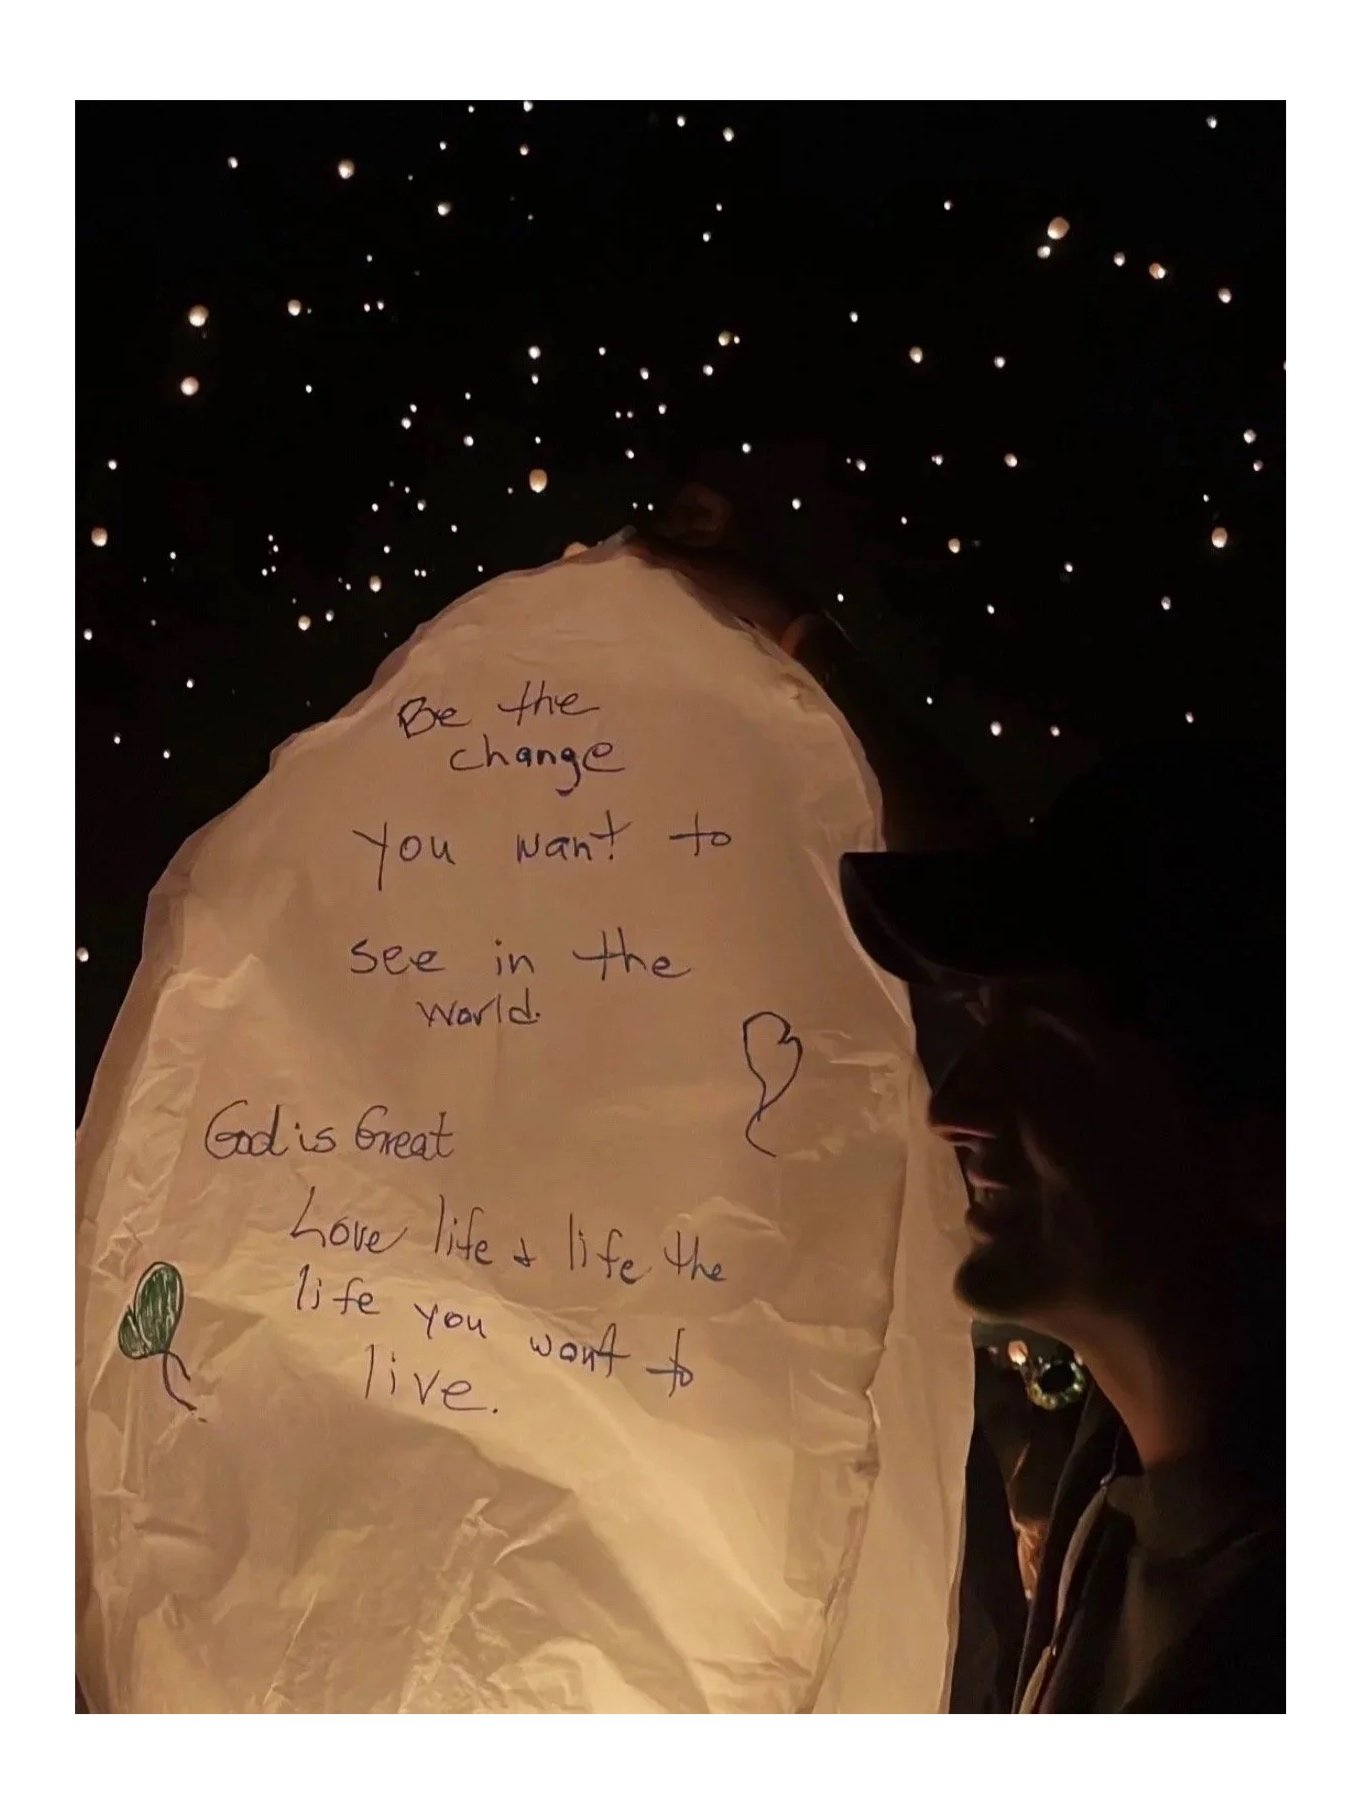 Be the
change
you want to
see in the
world.
God is Great
Love life & life the
life you want to
live.